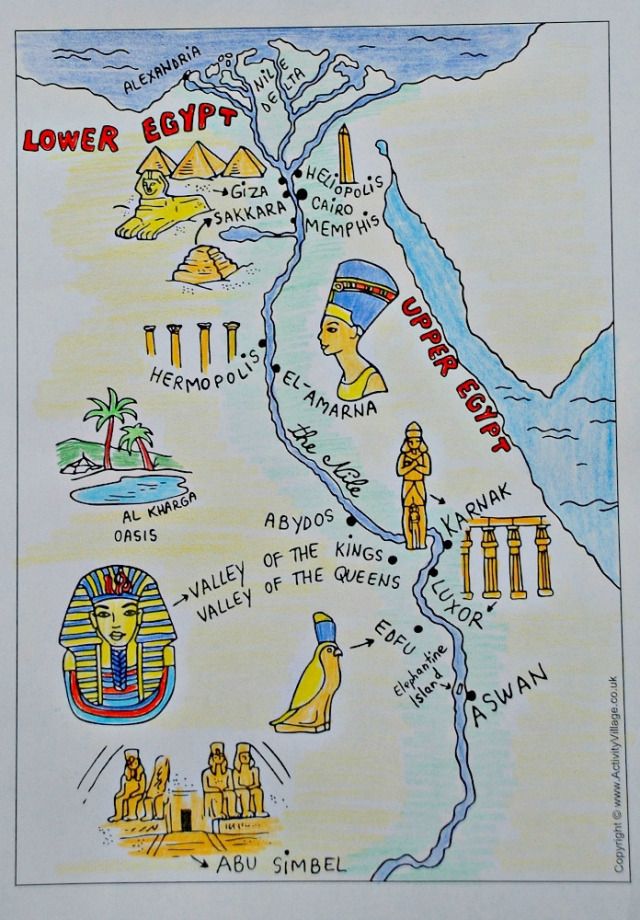 ALEXANDRIA
NILE
DELTA
LOWER EGYPT
HELIOPOLIS
GIZA
CAIRO
SAKKARA
MEMPHIS
UPPER EGYPT
HERMOPOLIS
EL-AMARNA
the Nile
AL KHARGA
OASIS
KARNAK
ABYDOS
VALLEY OF THE KINGS
VALLEY OF THE QUEENS
LUXOR
EDFU
Elephantine
Island
ASWAN
ABU SIMBEL
Copyright © www.ActivityVillage.co.uk